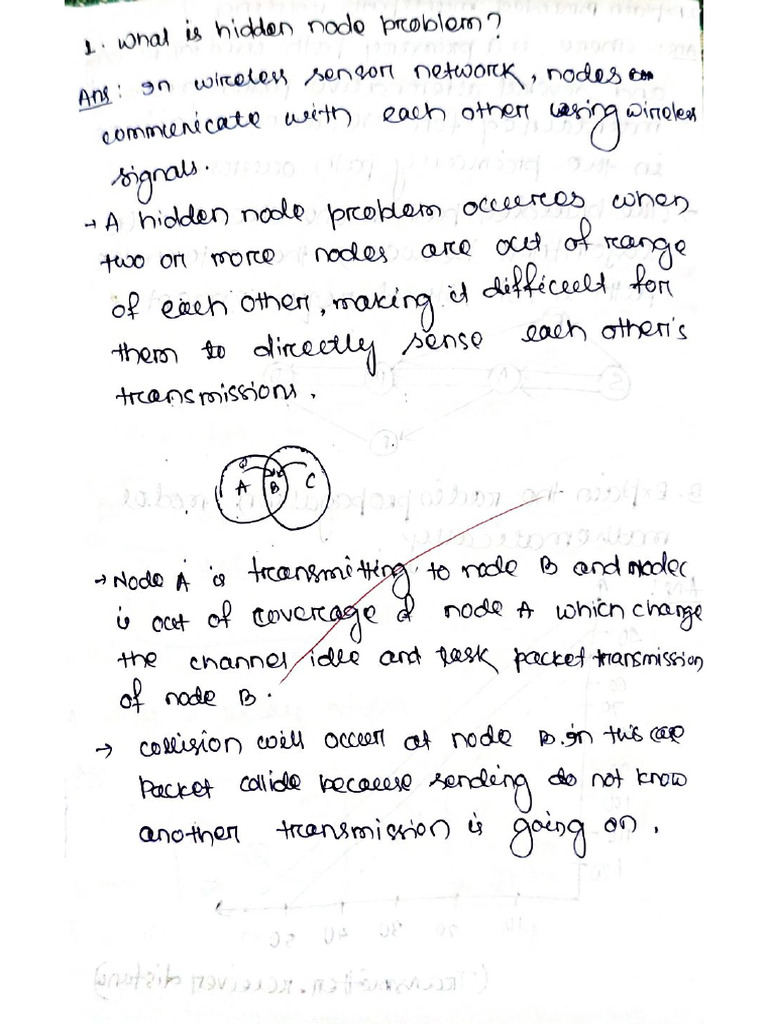 1. What is hidden node problem?
Ans: In wireless sensor network, nodes
communicate with each other using wireless
signals.
→ A hidden node problem occurres when
two or more nodes are out of range
of each other, making it difficult for
them to directly sense each other's
transmissions.
A B C
→ Node A is transmitting to node B and node C
is out of coverage of node A which change
the channel idle and task packet transmission
of node B.
→ Collision will occur at node B. In this case
Packet collide because sending do not know
another transmission is going on.